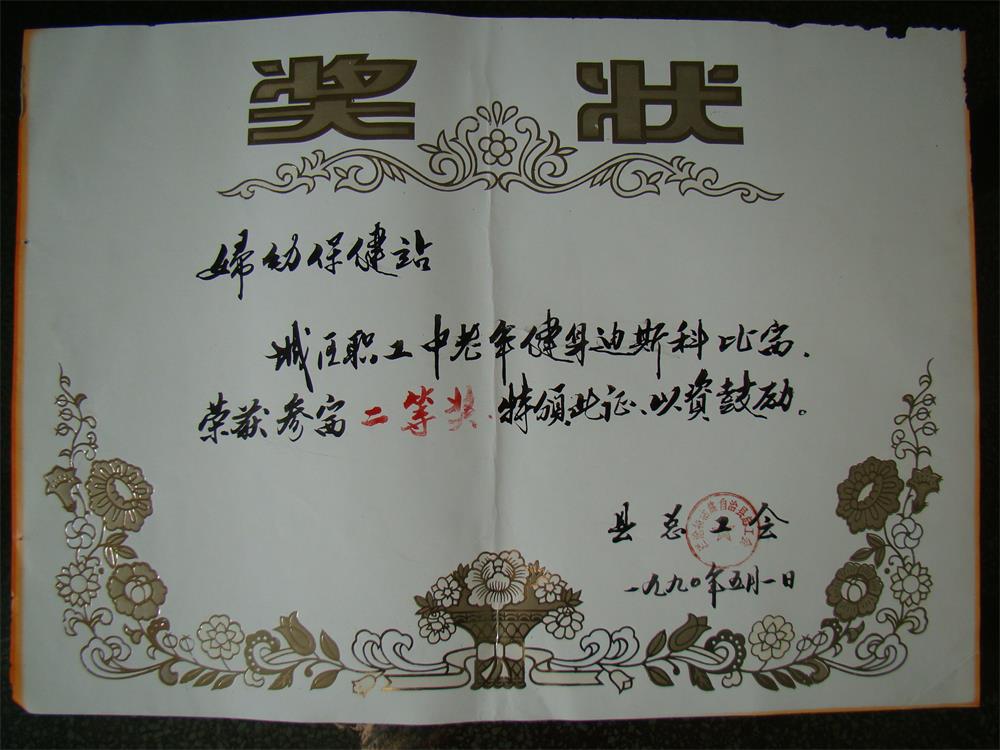 奖状
婦幼保健站
城区职工中老年健身迪斯科比赛.
荣获参赛二等奖.特颁此证、以資鼓励。
县总工会
自治县总工会
一九九〇年五月一日